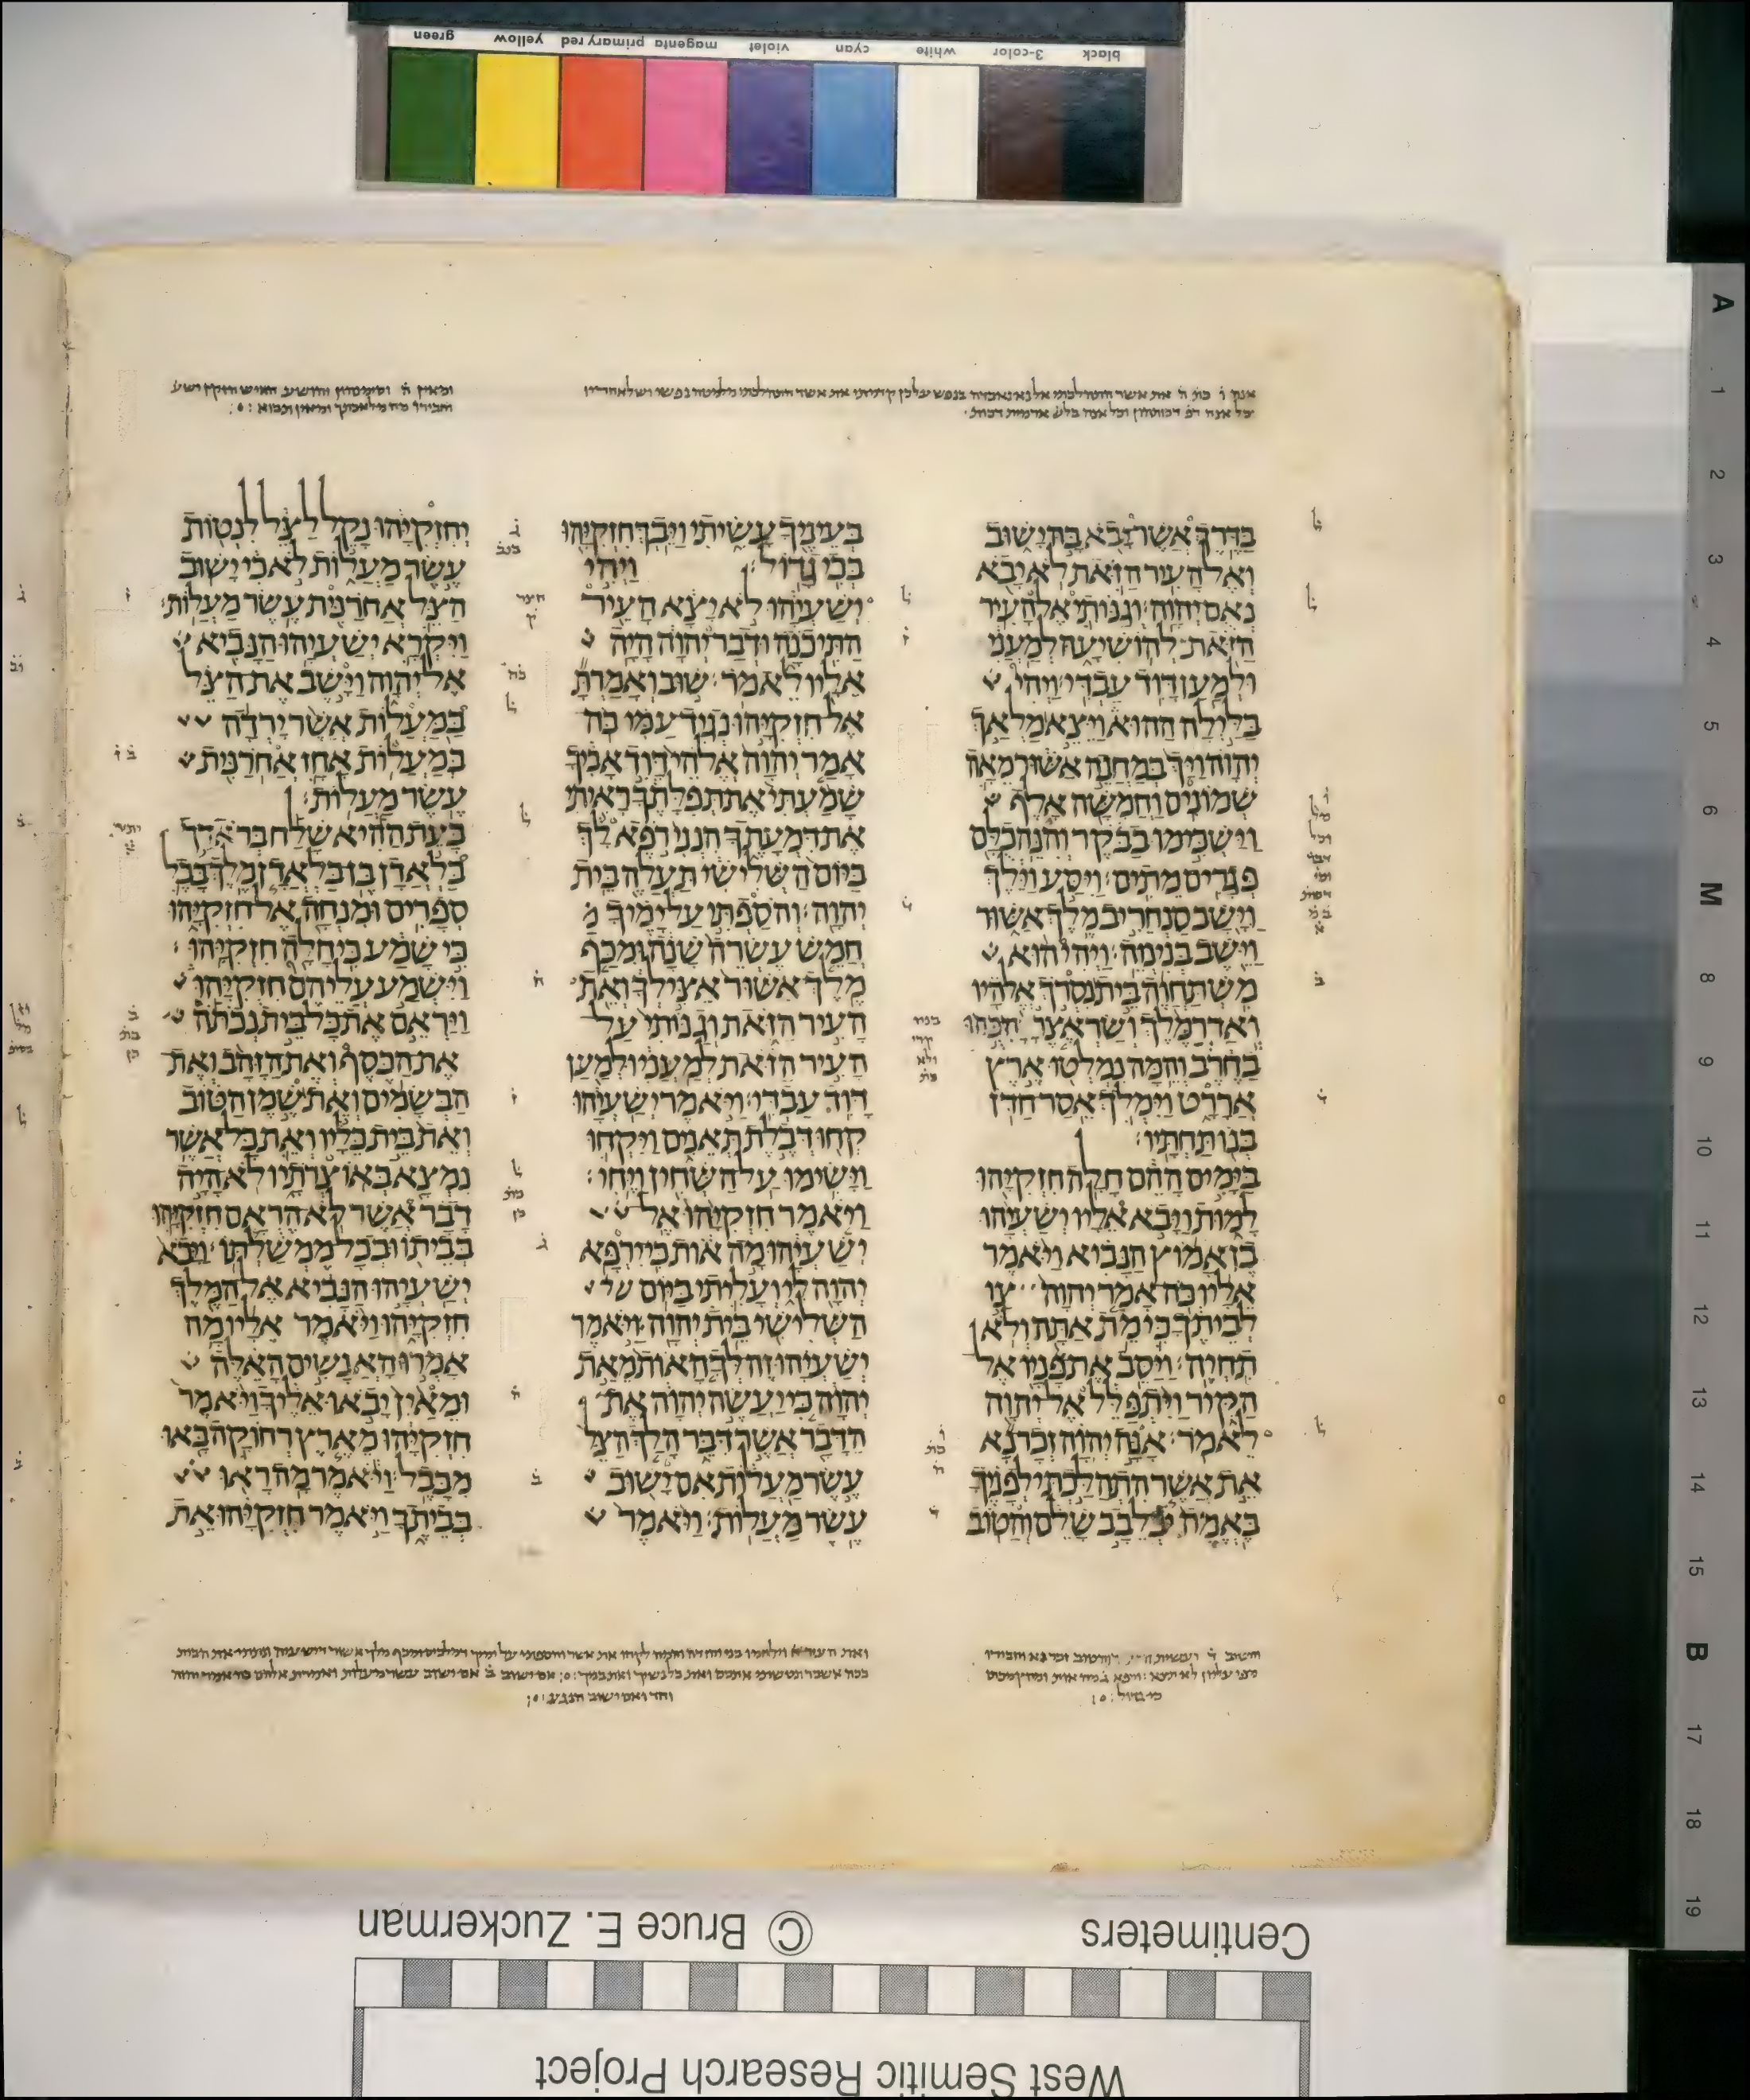 green yellow primary red magenta violet cyan white 3-color black
בַּדֶּרֶךְ אֲשֶׁר יָבֹא בָּהּ יָשׁוּב
וְאֶל הָעִיר הַזֹּאת לֹא יָבֹא
נְאֻם יְהוָה׃ וְגַנּוֹתִי אֶל הָעִיר
הַזֹּאת לְהוֹשִׁיעָהּ לְמַעֲנִי
וּלְמַעַן דָּוִד עַבְדִּי׃ וַיְהִי
בַּלַּיְלָה הַהוּא וַיֵּצֵא מַלְאַךְ
יְהוָה וַיַּךְ בְּמַחֲנֵה אַשּׁוּר מֵאָה
שְׁמוֹנִים וַחֲמִשָּׁה אָלֶף
וַיַּשְׁכִּימוּ בַבֹּקֶר וְהִנֵּה כֻלָּם
פְּגָרִים מֵתִים׃ וַיִּסַּע וַיֵּלֶךְ
וַיָּשָׁב סַנְחֵרִיב מֶלֶךְ אַשּׁוּר
וַיֵּשֶׁב בְּנִינְוֵה׃ וַיְהִי הוּא
מִשְׁתַּחֲוֶה בֵּית נִסְרֹךְ אֱלֹהָיו
וְאַדְרַמֶּלֶךְ וְשַׂרְאֶצֶר הִכֻּהוּ
בַחֶרֶב וְהֵמָּה נִמְלְטוּ אֶרֶץ
אֲרָרָט וַיִּמְלֹךְ אֵסַר חַדֹּן
בְּנוֹ תַּחְתָּיו׃
בַּיָּמִים הָהֵם חָלָה חִזְקִיָּהוּ
לָמוּת וַיָּבֹא אֵלָיו יְשַׁעְיָהוּ
בֶן אָמוֹץ הַנָּבִיא וַיֹּאמֶר
אֵלָיו כֹּה אָמַר יְהוָה צַו
לְבֵיתֶךָ כִּי מֵת אַתָּה וְלֹא
תִחְיֶה׃ וַיַּסֵּב אֶת פָּנָיו אֶל
הַקִּיר וַיִּתְפַּלֵּל אֶל יְהוָה
לֵאמֹר׃ אָנָּה יְהוָה זְכָר נָא
אֵת אֲשֶׁר הִתְהַלַּכְתִּי לְפָנֶיךָ
בֶּאֱמֶת וּבְלֵבָב שָׁלֵם וְהַטּוֹב
בְּעֵינֶיךָ עָשִׂיתִי וַיֵּבְךְּ חִזְקִיָּהוּ
בְּכִי גָדוֹל׃ וַיְהִי
יְשַׁעְיָהוּ לֹא יָצָא הָעִיר
הַתִּיכֹנָה וּדְבַר יְהוָה הָיָה
אֵלָיו לֵאמֹר׃ שׁוּב וְאָמַרְתָּ
אֶל חִזְקִיָּהוּ נְגִיד עַמִּי כֹּה
אָמַר יְהוָה אֱלֹהֵי דָּוִד אָבִיךָ
שָׁמַעְתִּי אֶת תְּפִלָּתֶךָ רָאִיתִי
אֶת דִּמְעָתֶךָ הִנְנִי רֹפֶא לָךְ
בַּיּוֹם הַשְּׁלִישִׁי תַּעֲלֶה בֵּית
יְהוָה׃ וְהֹסַפְתִּי עַל יָמֶיךָ
חֲמֵשׁ עֶשְׂרֵה שָׁנָה וּמִכַּף
מֶלֶךְ אַשּׁוּר אַצִּילְךָ וְאֵת
הָעִיר הַזֹּאת וְגַנּוֹתִי עַל
הָעִיר הַזֹּאת לְמַעֲנִי וּלְמַעַן
דָּוִד עַבְדִּי׃ וַיֹּאמֶר יְשַׁעְיָהוּ
קְחוּ דְּבֶלֶת תְּאֵנִים וַיִּקְחוּ
וַיָּשִׂימוּ עַל הַשְּׁחִין וַיֶּחִי׃
וַיֹּאמֶר חִזְקִיָּהוּ אֶל
יְשַׁעְיָהוּ מָה אוֹת כִּי יִרְפָּא
יְהוָה לִי וְעָלִיתִי בַּיּוֹם
הַשְּׁלִישִׁי בֵּית יְהוָה׃ וַיֹּאמֶר
יְשַׁעְיָהוּ זֶה לְּךָ הָאוֹת מֵאֵת
יְהוָה כִּי יַעֲשֶׂה יְהוָה אֶת
הַדָּבָר אֲשֶׁר דִּבֵּר הָלַךְ הַצֵּל
עֶשֶׂר מַעֲלוֹת אִם יָשׁוּב
עֶשֶׂר מַעֲלוֹת׃ וַיֹּאמֶר
יְחִזְקִיָּהוּ נָקֵל לַצֵּל לִנְטוֹת
עֶשֶׂר מַעֲלוֹת לֹא כִי יָשׁוּב
הַצֵּל אֲחֹרַנִּית עֶשֶׂר מַעֲלוֹת׃
וַיִּקְרָא יְשַׁעְיָהוּ הַנָּבִיא
אֶל יְהוָה וַיָּשֶׁב אֶת הַצֵּל
בַּמַּעֲלוֹת אֲשֶׁר יָרְדָה
בְּמַעֲלוֹת אָחָז אֲחֹרַנִּית
עֶשֶׂר מַעֲלוֹת׃
בָּעֵת הַהִיא שָׁלַח בְּרֹאדַךְ
בַּלְאֲדָן בֶּן בַּלְאֲדָן מֶלֶךְ בָּבֶל
סְפָרִים וּמִנְחָה אֶל חִזְקִיָּהוּ
כִּי שָׁמַע כִּי חָלָה חִזְקִיָּהוּ׃
וַיִּשְׁמַע עֲלֵיהֶם חִזְקִיָּהוּ
וַיַּרְאֵם אֶת כָּל בֵּית נְכֹתֹה
אֶת הַכֶּסֶף וְאֶת הַזָּהָב וְאֶת
הַבְּשָׂמִים וְאֵת שֶׁמֶן הַטּוֹב
וְאֵת בֵּית כֵּלָיו וְאֵת כָּל אֲשֶׁר
נִמְצָא בְּאוֹצְרֹתָיו לֹא הָיָה
דָבָר אֲשֶׁר לֹא הֶרְאָם חִזְקִיָּהוּ
בְּבֵיתוֹ וּבְכָל מֶמְשַׁלְתּוֹ׃ וַיָּבֹא
יְשַׁעְיָהוּ הַנָּבִיא אֶל הַמֶּלֶךְ
חִזְקִיָּהוּ וַיֹּאמֶר אֵלָיו מָה
אָמְרוּ הָאֲנָשִׁים הָאֵלֶּה
וּמֵאַיִן יָבֹאוּ אֵלֶיךָ וַיֹּאמֶר
חִזְקִיָּהוּ מֵאֶרֶץ רְחוֹקָה בָּאוּ
מִבָּבֶל׃ וַיֹּאמֶר מָה רָאוּ
בְּבֵיתֶךָ וַיֹּאמֶר חִזְקִיָּהוּ אֵת
A 1 2 3 4 5 6 M 8 9 10 11 12 13 14 15 B 17 18 19
Centimeters © Bruce E. Zuckerman
West Semitic Research Project